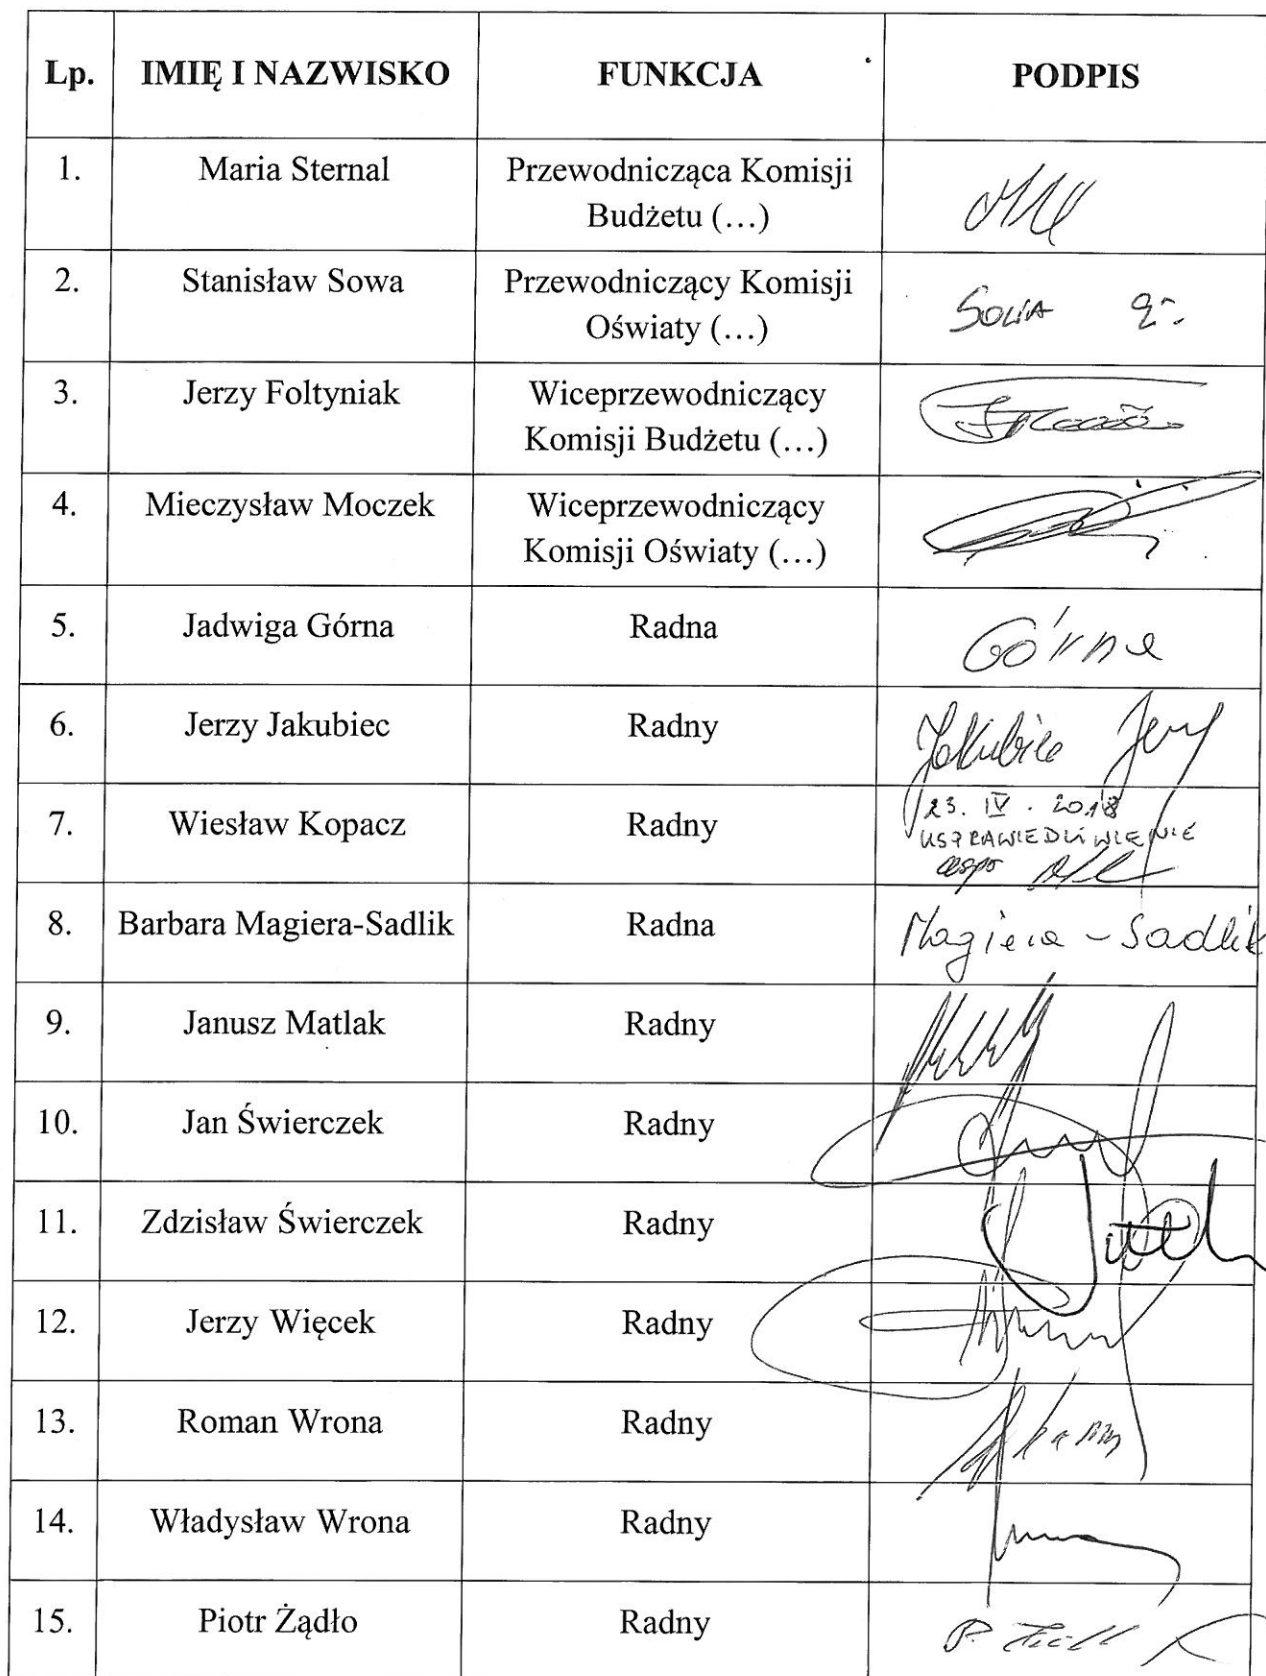 Lp. IMIĘ I NAZWISKO FUNKCJA PODPIS
1. Maria Sternal Przewodnicząca Komisji
Budżetu (…)
2. Stanisław Sowa Przewodniczący Komisji
Oświaty (…) Sowa
3. Jerzy Foltyniak Wiceprzewodniczący
Komisji Budżetu (…)
4. Mieczysław Moczek Wiceprzewodniczący
Komisji Oświaty (…)
5. Jadwiga Górna Radna Górna
6. Jerzy Jakubiec Radny Jakubiec Jerzy
7. Wiesław Kopacz Radny 23. IV. 2018
USPRAWIEDLIWIENIE
8. Barbara Magiera-Sadlik Radna Magiera - Sadlik
9. Janusz Matlak Radny
10. Jan Świerczek Radny
11. Zdzisław Świerczek Radny
12. Jerzy Więcek Radny
13. Roman Wrona Radny
14. Władysław Wrona Radny
15. Piotr Żądło Radny